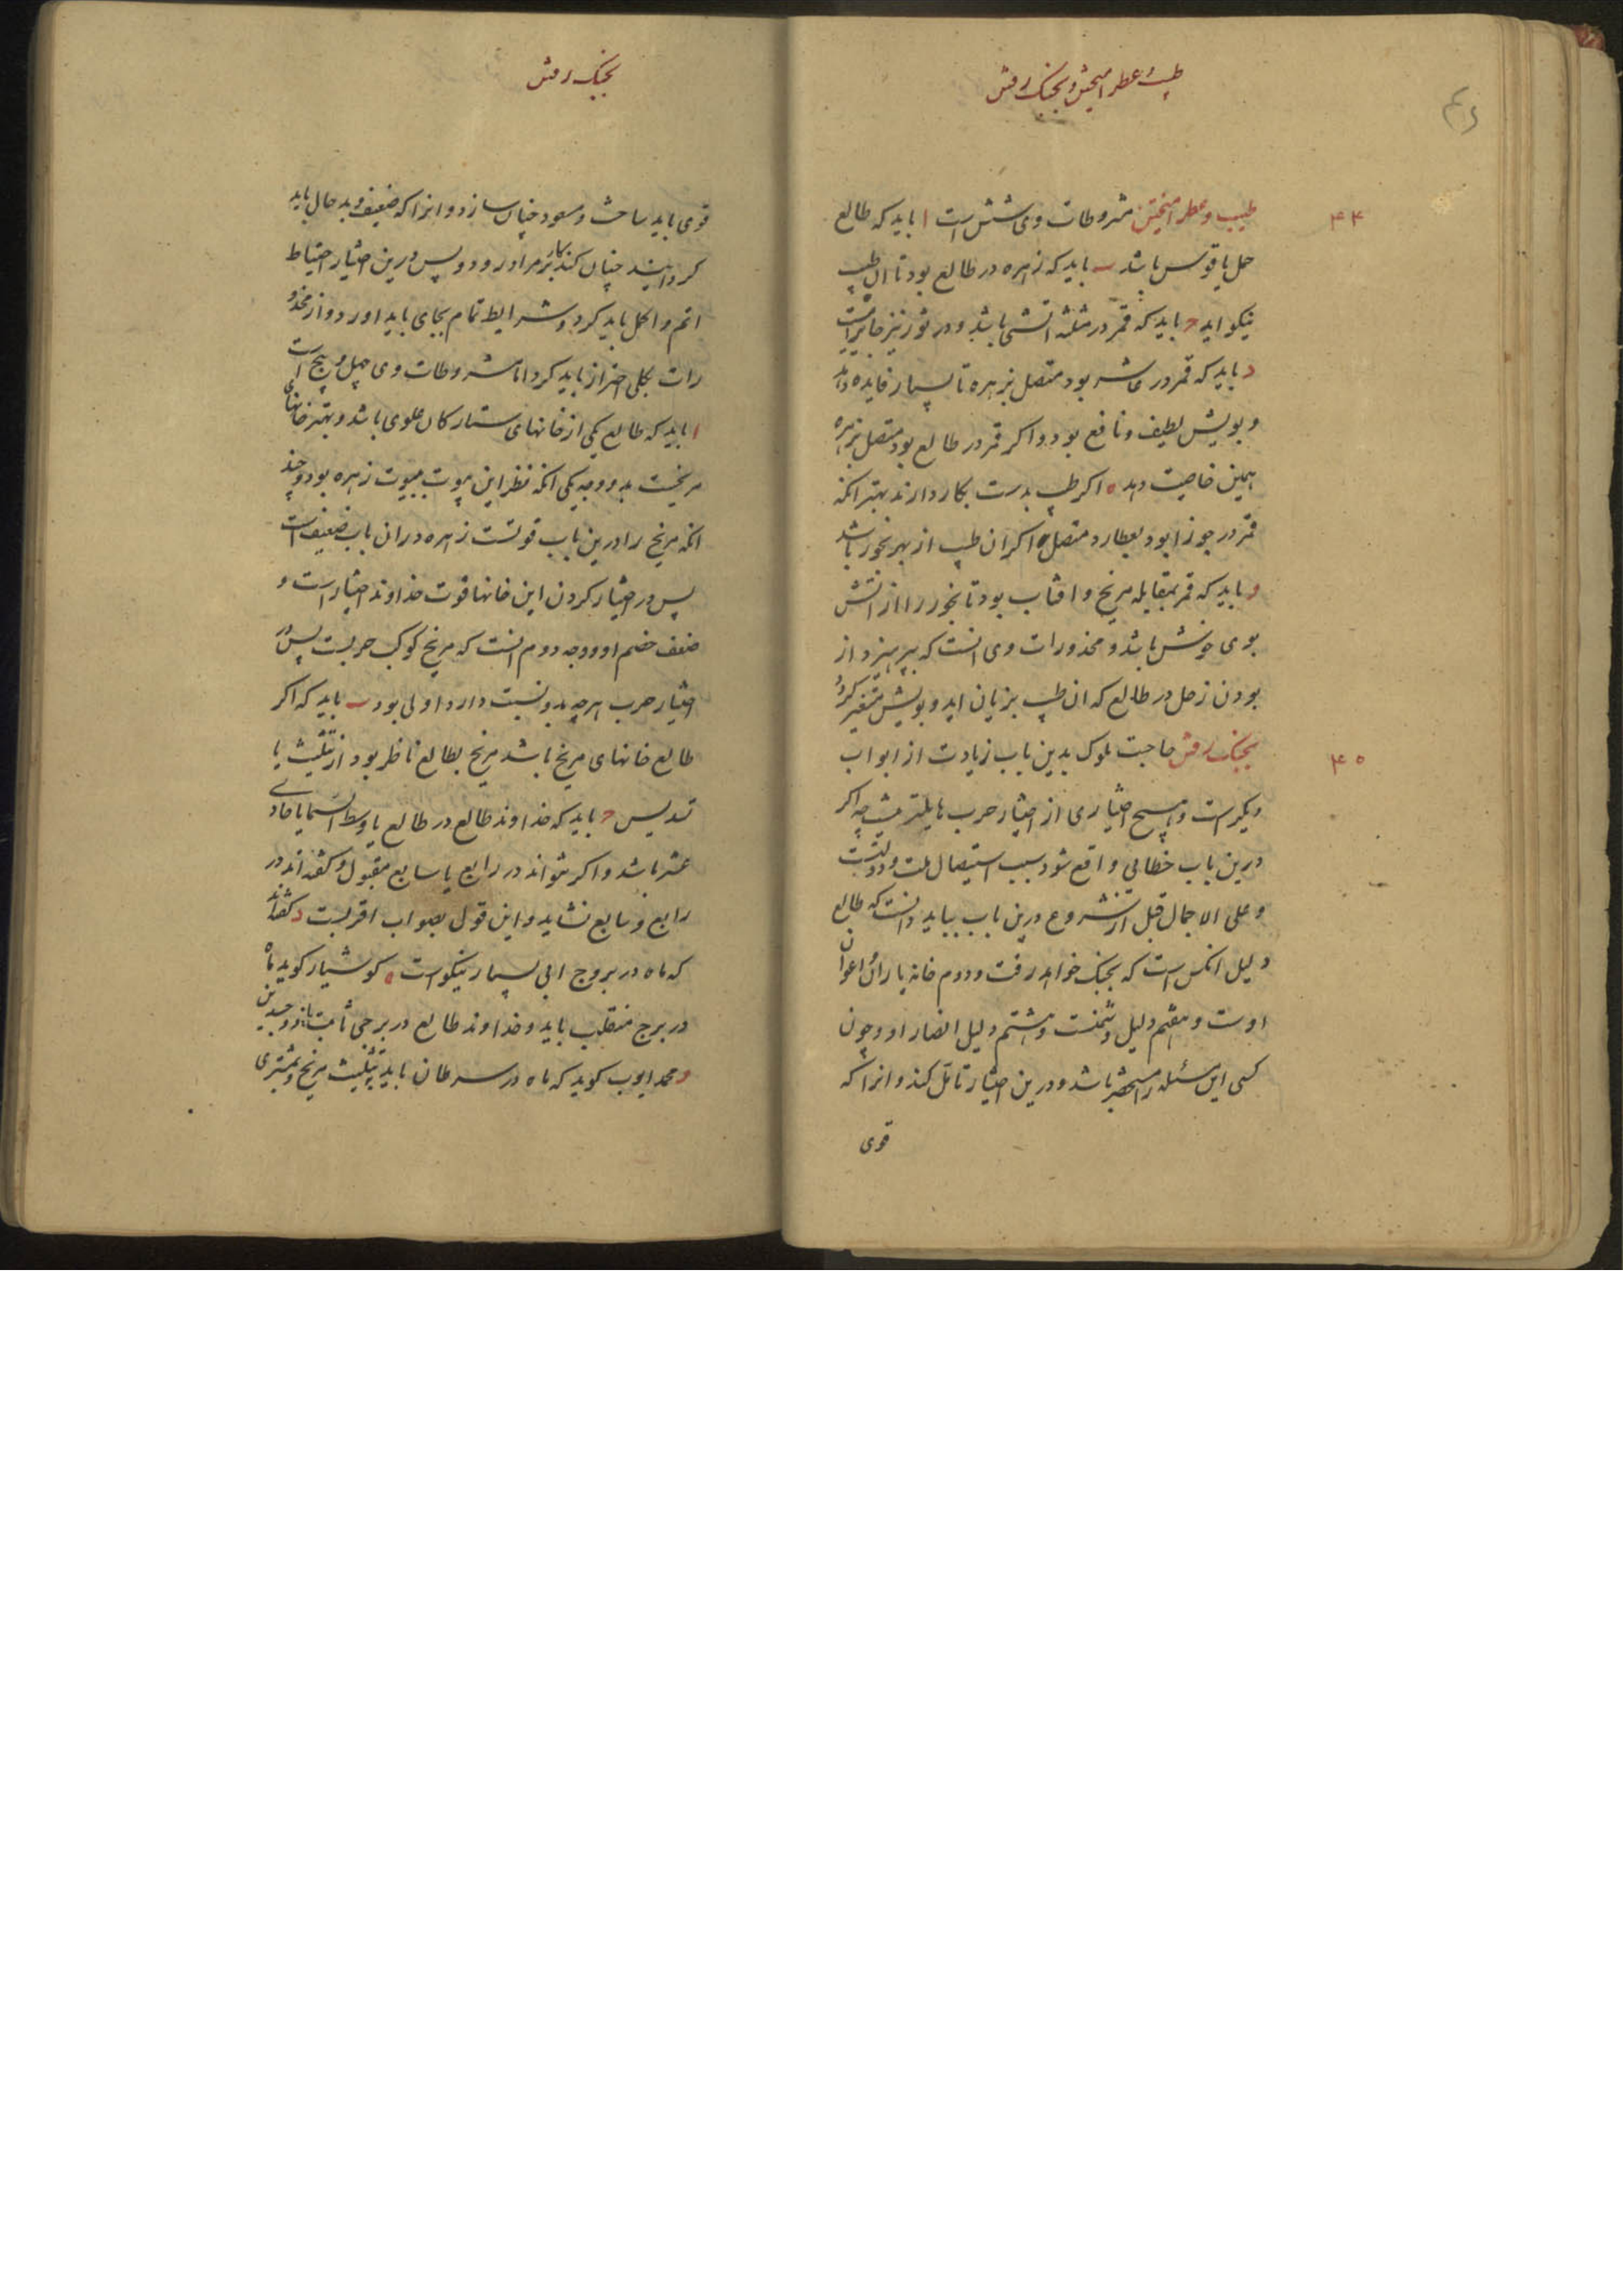 طیب و عطر امیختن و بجنک رفتن
۴۴
طیب و عطر امیختن مشروطات وی شش است ا باید که طالع
حمل یا قوس باشد ب باید که زهره در طالع بود تا ان طیب
نیکو اید ج باید که قمر در مثلثه اتشی باشد و در ثور نیز جایز است
د باید که قمر در عاشر بود متصل بزهره تا بسیار فایده دهد
و بویش لطیف و نافع بود و اکر قمر در طالع بود متصل بزهره
همین خاصیت دهد ه اکر طیب بدست بکار دارند بهتر انکه
قمر در جوزا بود بعطارد متصل و اکر ان طیب از بهر بخور باشد
و باید که قمر بمقابله مریخ و افتاب بود تا بخور را از اتش
بوی خوش باشد و محذورات وی انست که بپرهیزد از
بودن زحل در طالع که ان طیب بزیان اید و بویش متغیر کردد
۴۵
بجنک رفتن حاجت ملوک بدین باب زیادت از ابواب
دیکر است و هیچ اختیاری از اختیار حرب هایلتر نیست چه اکر
درین باب خطایی واقع شود سبب استیصال ملت و دولتست
و علی الاجمال قبل از شروع درین باب بباید دانست که طالع
دلیل انکس است که بجنک خواهد رفت و دوم خانه یاران و اعوان
اوست و هفتم دلیل دشمنست و هشتم دلیل انصار او و چون
کسی این مسئله را مستحضر باشد و درین اختیار تامل کند و انرا که
قوی
بجنک رفتن
قوی باید ساخت و مسعود چنان سازد و انرا که ضعیف و بد حال باید
کردانید چنان کند کار بر مراد رود و پس درین اختیار احتیاط
اتم و اکمل باید کرد و شرایط تمام بجای باید اورد و از محذو
رات بکلی احتراز باید کرد اما مشروطات وی چهل و پنج است
ا باید که طالع یکی از خانهای ستارکان علوی باشد و بهتر خانهای
مریخست بدو وجه یکی انکه نظر این بیوت ببیوت زهره بود و چند
انکه مریخ را درین باب قوتست زهره در ان باب ضعیف است
پس در اختیار کردن این خانها قوت خداوند اختیار است و
ضعف خصم او و وجه دوم انست که مریخ کوکب حربست پس در
اختیار حرب هرچه بدو نسبت دارد اولی بود ب باید که اکر
طالع خانهای مریخ باشد مریخ بطالع ناظر بود از تثلیث یا
تسدیس ج باید که خداوند طالع در طالع یا وسط السما یا حادی
عشر باشد و اکر نتواند در رابع یا سابع مقبول و کفته‌اند در
رابع و سابع نشاید و این قول بصواب اقربست د کفته‌اند
که ماه در بروج ابی بسیار نیکو است ه کوشیار کوید ماه
در برج منقلب باید و خداوند طالع در برجی ثابت یا ذوجسدین
و محمد ایوب کوید که ماه در سرطان باید بتثلیث مریخ و مشتری